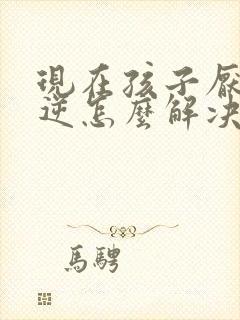 現在孩子厭
逆怎麼解決
馬騁